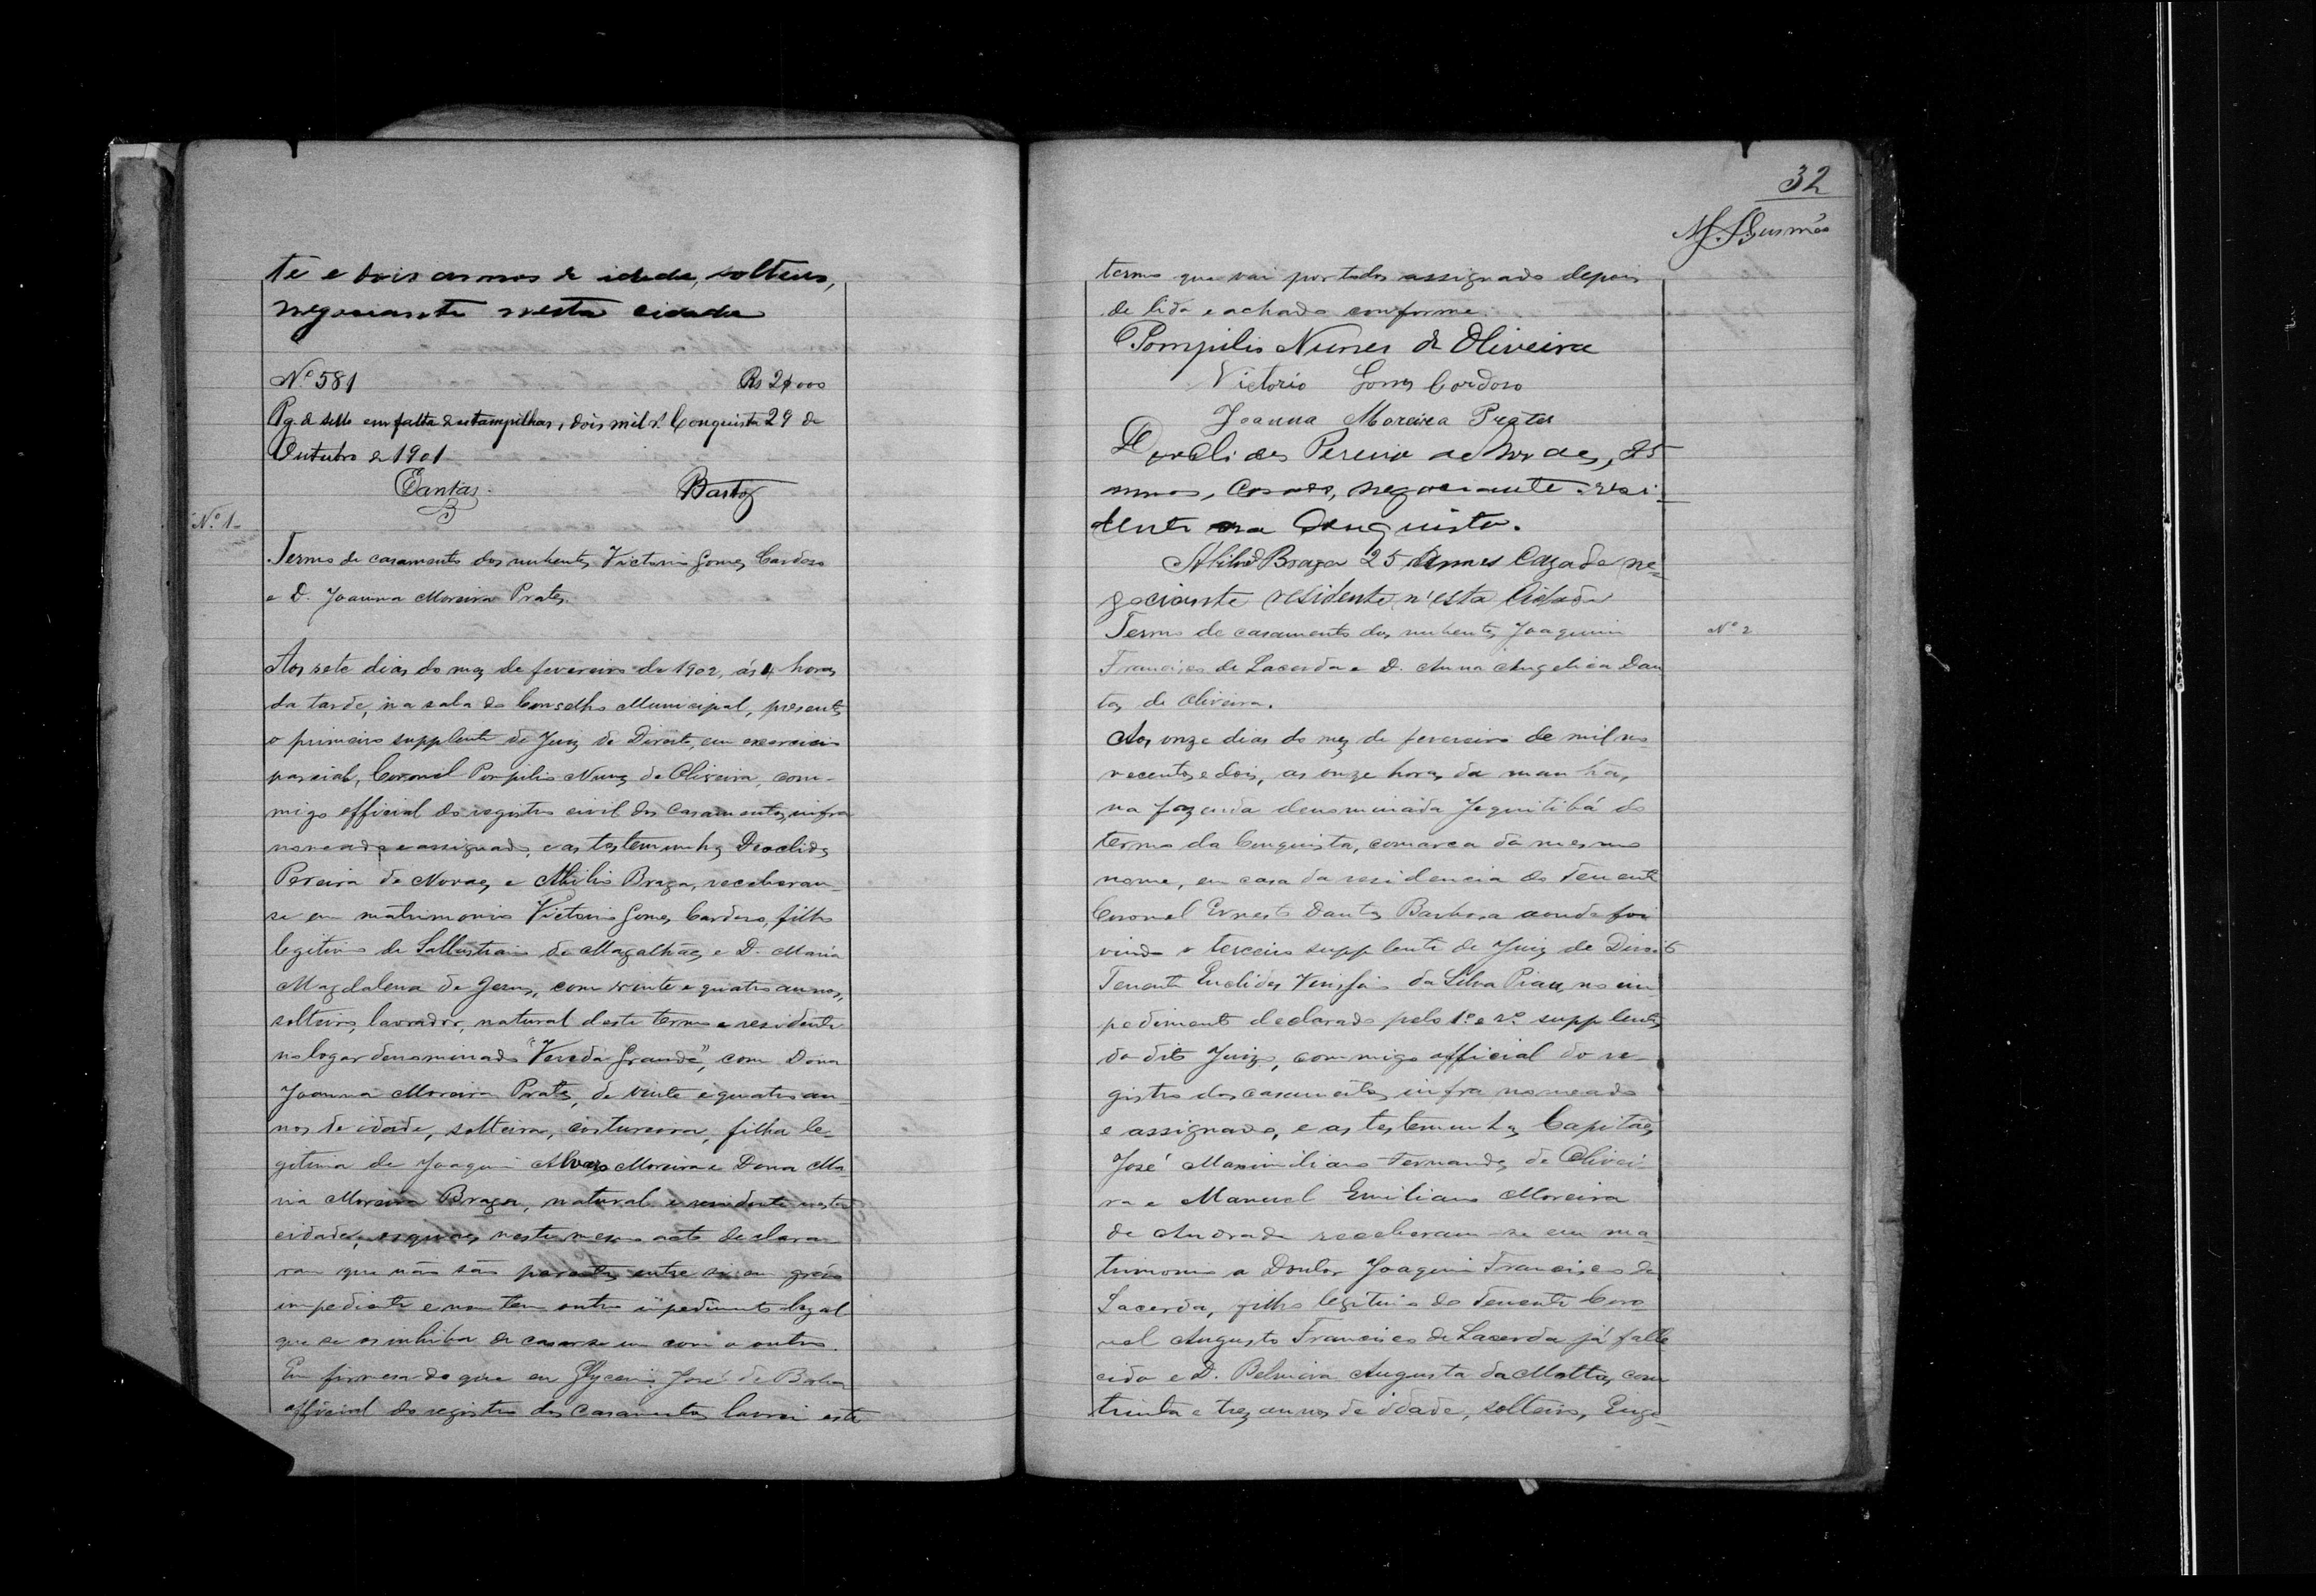 te e dois annos de idade, solteiro,
negociante nesta cidade
Nº 581 Rs 2$000
Pg. de sello em falta de estampilhas, dois mil rs. Conquista 29 de
Outubro de 1901
Dantas Bastos
Nº 1
Termo de casamento dos nubentes Victorio Gomes Cardoso
e D. Joanna Moreira Prates.
Aos sete dias do mez de fevereiro de 1902, ás 4 horas
da tarde, na sala do Conselho Municipal, presente
o primeiro supplente do Juiz de Direito, em exercicio
parcial, Coronel Pompilio Nunes de Oliveira, com-
migo official do registro civil dos casamentos, infra
nomeado e assignado, e as testemunhas Deoclides
Pereira de Novaes e Abilio Braga, receberam-
se em matrimonio Victorio Gomes Cardoso, filho
legitimo de Sallustiano de Magalhães e D. Maria
Magdalena de Jesus, com vinte e quatro annos,
solteiro, lavrador, natural deste termo e residente
no logar denominado "Vereda Grande", com Dona
Joanna Moreira Prates, de vinte e quatro an-
nos de idade, solteira, costureira, filha le-
gitima de Joaquim Alves Moreira e Dona Ma-
ria Moreira Braga, natural e residente nesta
cidade, os quaes neste mesmo acto declara-
ram que não são parentes entre si em gráo
impediente e nem tem outro impedimento legal
que se os inhiba de casar-se um com o outro.
Em firmesa do que eu Glycerio José de
official do registro dos casamentos lavrei este
32
termo que vai por todos assignado depois
de lido e achado conforme.
Pompilio Nunes de Oliveira
Victorio Gomes Cardoso
Joanna Moreira Prates
Deoclides Pereira de Novaes, 25
annos, casado, negociante resi-
dente na Conquista.
Abilio Braga 25 Annos Cazado ne-
gociante residente n'esta Cidade
Termo de casamento dos nubentes Joaquim
Nº 2
Francisco de Lacerda e D. Anna Angelica Dan
tas de Oliveira.
Aos onze dias do mez de fevereiro de mil no-
vecentos e dois, as onze horas da manhã,
na fazenda denominada Jequitibá do
termo da Conquista, comarca do mesmo
nome, em casa da residencia do Tenente
Coronel Ernesto Dantas Barbosa aonde foi
vindo o terceiro supplente do Juiz de Direito
Tenente Euclides da Silva Piau, no im-
pedimento declarado pelo 1º e 2º supplentes
do dito Juizo, commigo official do re-
gistro dos casamentos infra nomeado
e assignado, e as testemunhas Capitães
José Maximiliano Fernandes de Olivei-
ra e Manuel Emiliano Moreira
de Andrade receberam-se em ma-
trimonio o Doutor Joaquim Francisco de
Lacerda, filho legitimo do Tenente Coro
nel Augusto Francisco de Lacerda já falle
cido e D. Belmira Augusta da Motta, com
trinta e trez annos de idade, solteiro, Enge-